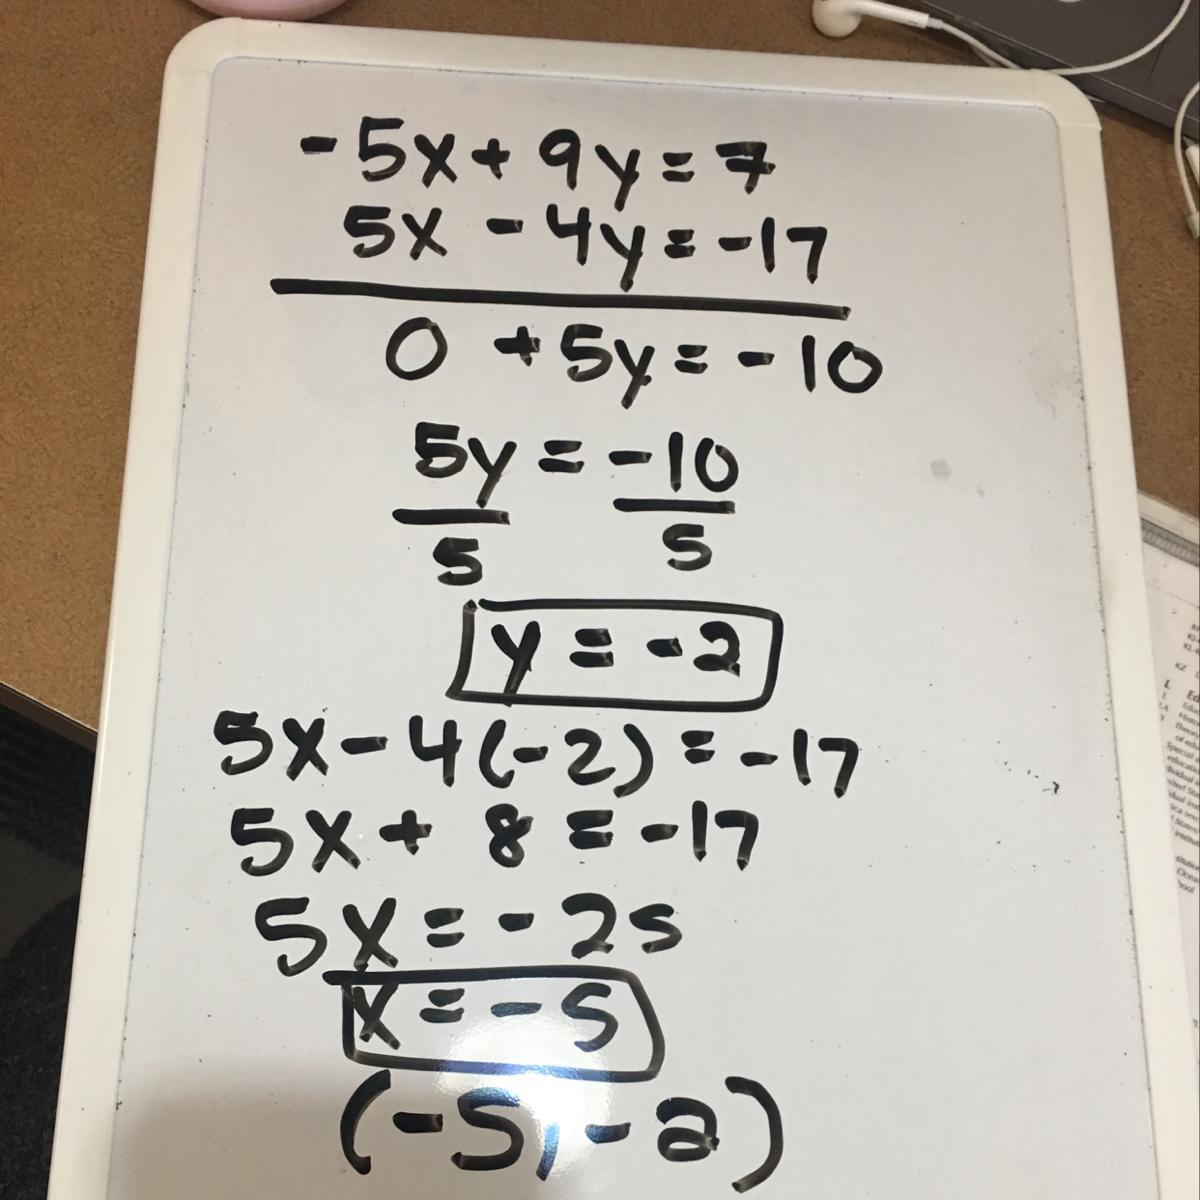 -5x + 9y = 7
5x - 4y = -17
0 + 5y = -10
5y = -10
5 5
y = -2
5x - 4(-2) = -17
5x + 8 = -17
5x = -25
x = -5
(-5, -2)